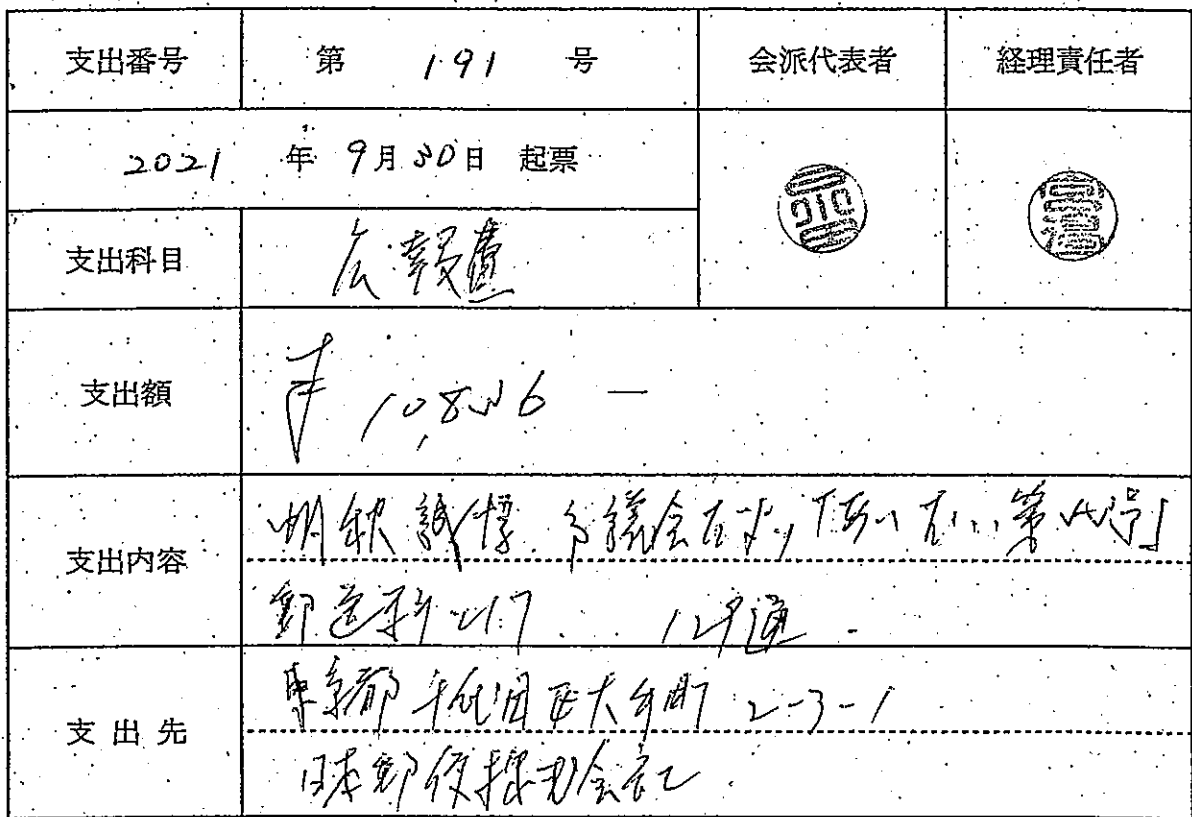 支出番号 第 191 号 会派代表者 経理責任者
2021 年 9月30日 起票
支出科目 広報費
支出額 ¥10,8
支出内容 市議会 第 号」
郵送料として 通
支出先 東京都千代田区大手町 2-3-1
日本郵便株式会社